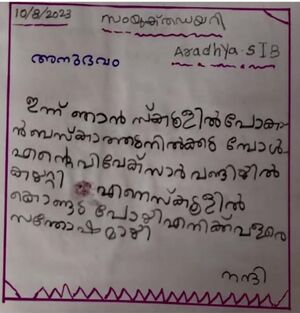 10/8/2023 സംയുക്തഡയറി
അനുഭവം Aradhya.S 1B
ഇന്ന് ഞാൻ സ്കൂളിൽ പോകാ
ൻ ബസ് കാത്തു നിൽക്കു മ്പോൾ
എൻെ വിവേക് സാർ വണ്ടിയിൽ
കയറ്റി എണെ സ്കൂളിൽ
കൊണ്ടു പോയി എനിക്ക് വളരെ
സന്തോഷമായി
നന്ദി